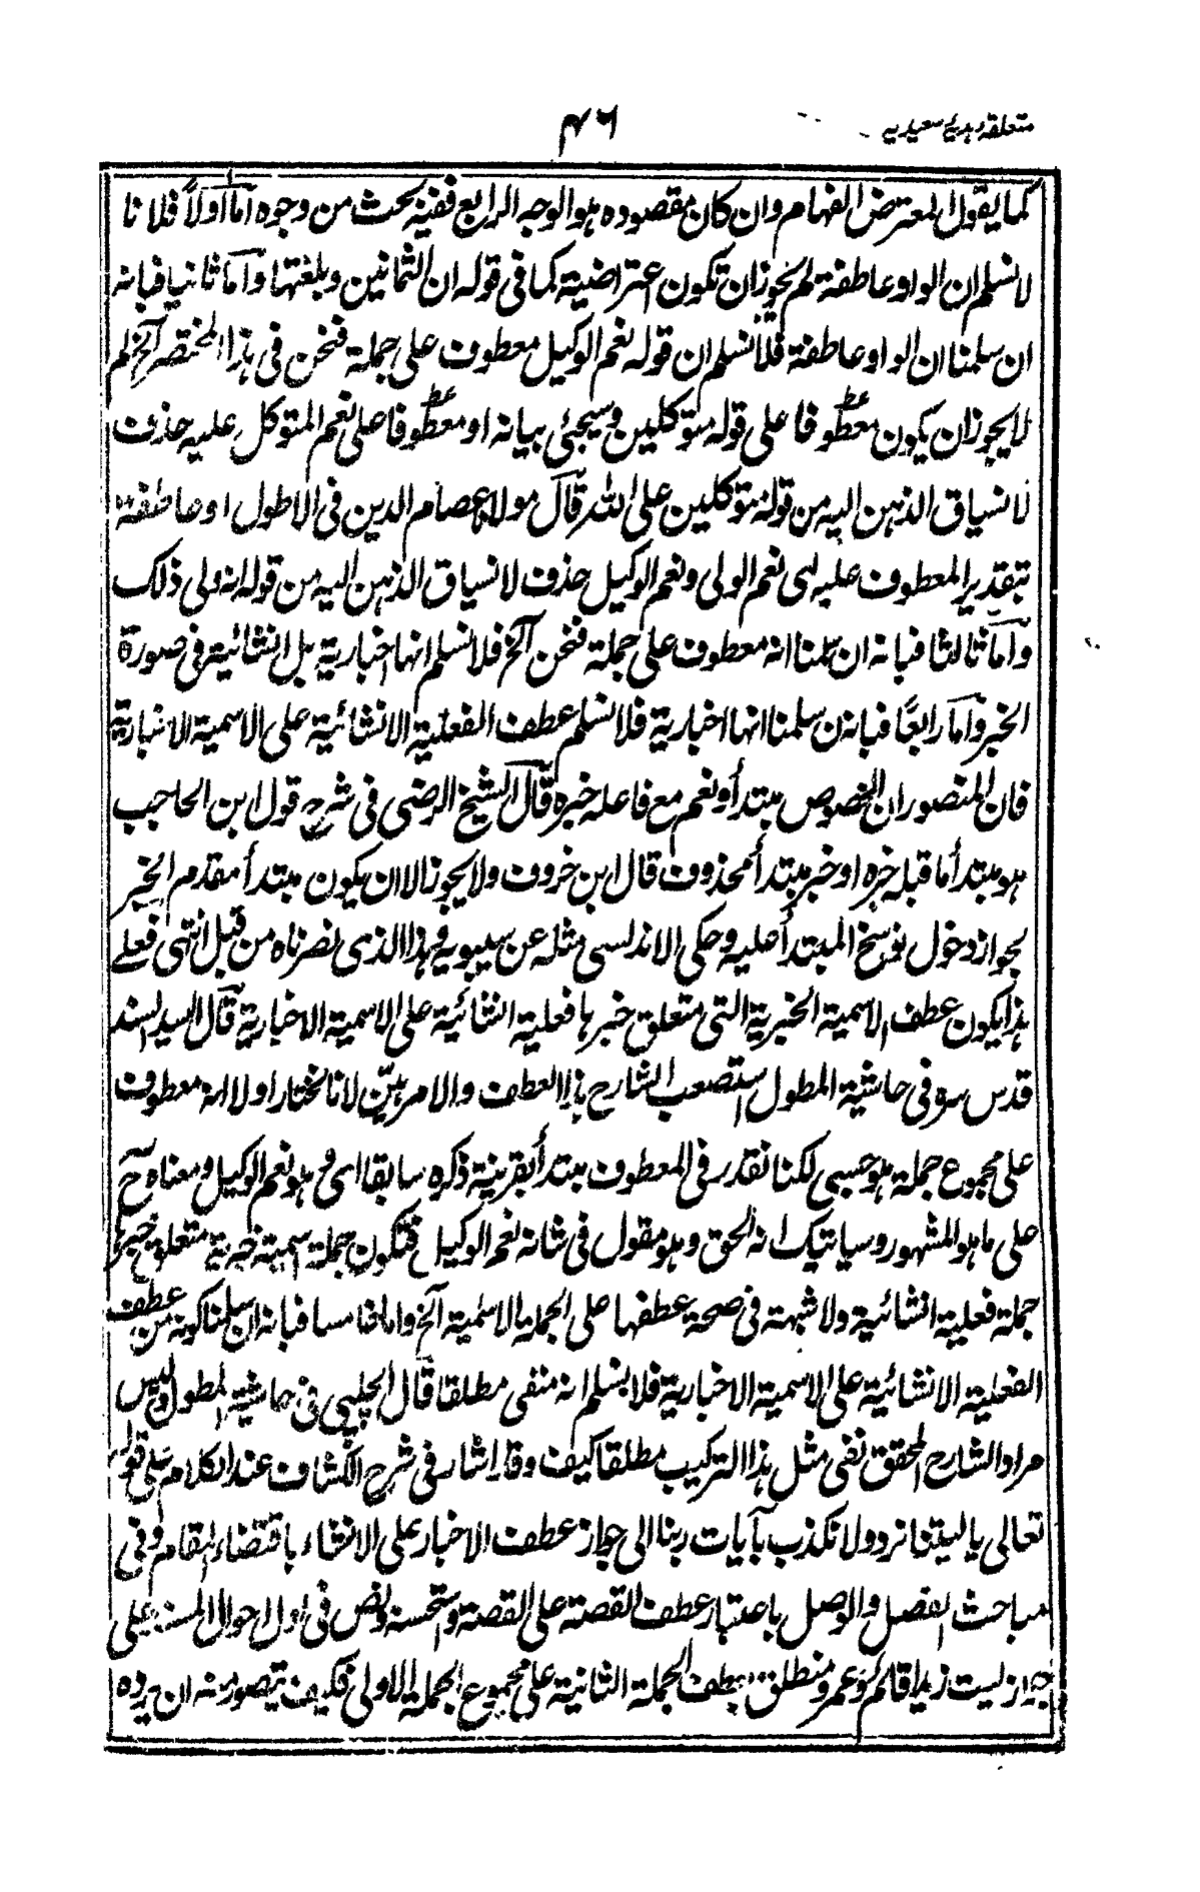 متعلقہ ہدیۂ سعیدیہ
۴۶
كما يقول المعترض الفهام وان كان مقصوده هو الوجه الرابع ففيه بحث من وجوه اما اولاً فلانا
لا نسلم ان الواو عاطفة لم لا يجوز ان تكون اعتراضية كما فى قوله ان الثمانين وبلغتها واما ثانيا فبانه
ان سلمنا ان الواو عاطفة فلا نسلم ان قوله نعم الوكيل معطوف على جملة فنحن فى هذا المختصر آلخ لم
لا يجوز ان يكون معطوفا على قوله متوكلين وسيجئ بيانه او معطوفا على نعم المتوكل عليه حذف
لانسياق الذهن اليه من قوله متوكلين على الله قال مولانا عصام الدين فى الاطول او عاطفة
بتقدير المعطوف عليه اى نعم الولى ونعم الوكيل حذف لانسياق الذهن اليه من قوله انه ولى ذلك
واما ثالثا فبانه ان سلمنا انه معطوف على جملة فنحن آلخ فلا نسلم انها اخبارية بل انشائية فى صورة
الخبر واما رابعًا فبانه ان سلمنا انها اخبارية فلا نسلم عطف الفعلية الانشائية على الاسمية الاخبارية
فان المنصور ان المخصوص مبتدأ ونعم مع فاعله خبره قال الشيخ الرضى فى شرح قول ابن الحاجب
هو مبتدأ ما قبله خبره او خبر مبتدأ محذوف قال ابن خروف ولا يجوز الا ان يكون مبتدأ مقدم الخبر
لجواز دخول نواسخ المبتدأ عليه وحكى الاندلسى مثله عن سيبويه وهذا الذى نصرناه من قبل انتهى فعلے
هذا يكون عطف الاسمية الخبرية التى متعلق خبرها فعلية انشائية على الاسمية الاخبارية قال السيد السند
قدس سره فى حاشية المطول استصعب الشارح هذا العطف والامر هيّن لانا نختار اولا انه معطوف
على مجموع جملة هو حسبى لكنا نقدر فى المعطوف مبتدأ بقرينة ذكره سابقا اى وهو نعم الوكيل ومعناه ح
على ما هو المشهور وسياتيك انه الحق وهو مقول فى شانه نعم الوكيل فتكون جملة اسمية خبرية متعلق خبرها
جملة فعلية انشائية ولا شبهة فى صحة عطفها على الجملة الاسمية آلخ واما خامسا فبانه ان سلمنا كونه من عطف
الفعلية الانشائية على الاسمية الاخبارية فلا نسلم انه منفى مطلقا قال الچلپى فى حاشية المطول وليس
مراد الشارح المحقق نفى مثل هذا التركيب مطلقا كيف وقد اشار فى شرح الكشاف عند الكلام على قوله
تعالى يا ليتنا نرد ولا نكذب بآيات ربنا الى جواز عطف الاخبار على الانشاء باقتضاء المقام وفى
مباحث الفصل والوصل باعتبار عطف القصة على القصة واستحسنه ونص فى اول احوال المسند على
جواز ليت زيدا قائم وعمرو منطلق بعطف الجملة الثانية على مجموع الجملة الاولى فكيف يتصور منه ان يرده